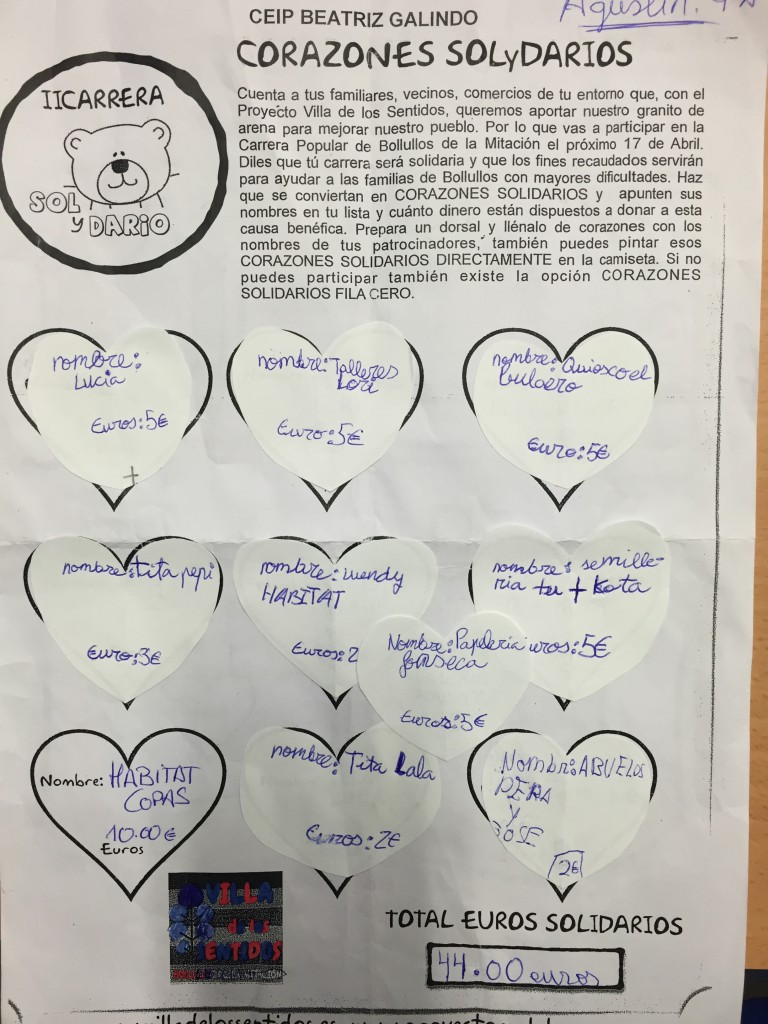 CEIP BEATRIZ GALINDO
Agustín.
CORAZONES SOLyDARIOS
IICARRERA
SOL
y DARIO
Cuenta a tus familiares, vecinos, comercios de tu entorno que, con el
Proyecto Villa de los Sentidos, queremos aportar nuestro granito de
arena para mejorar nuestro pueblo. Por lo que vas a participar en la
Carrera Popular de Bollullos de la Mitación el próximo 17 de Abril.
Diles que tú carrera será solidaria y que los fines recaudados servirán
para ayudar a las familias de Bollullos con mayores dificultades. Haz
que se conviertan en CORAZONES SOLIDARIOS y apunten sus
nombres en tu lista y cuánto dinero están dispuestos a donar a esta
causa benéfica. Prepara un dorsal y llénalo de corazones con los
nombres de tus patrocinadores, también puedes pintar esos
CORAZONES SOLIDARIOS DIRECTAMENTE en la camiseta. Si no
puedes participar también existe la opción CORAZONES
SOLIDARIOS FILA CERO.
nombre:
Lucia
Euros:5€
nombre: Talleres
Lori
Euro:5€
nombre: Quiosco el
bulaero
Euro:5€
nombre: tita pepi
Euro:3€
nombre: wendy
HABITAT
Euros:2
nombre: semille-
ria tu + kota
uros:5€
Nombre: Papeleria
fonseca
Euros:5€
Nombre: HABITAT
COPAS
10.00 €
Euros
nombre: Tita Lala
Euros:2€
Nombr: ABUELOS
PEPA
y
JOSE
2€
VILLA
de los
SENTIDOS
TOTAL EUROS SOLIDARIOS
44.00 euros